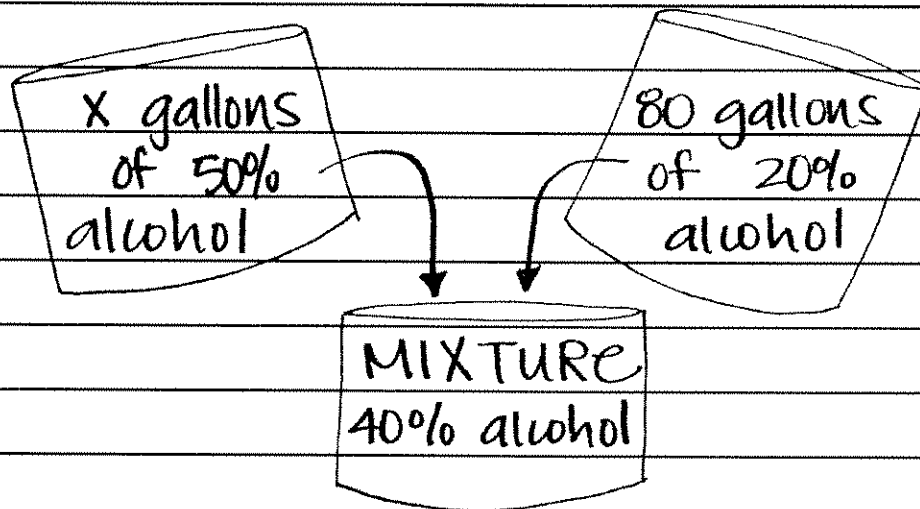 x gallons
of 50%
alcohol
80 gallons
of 20%
alcohol
MIXTURE
40% alcohol